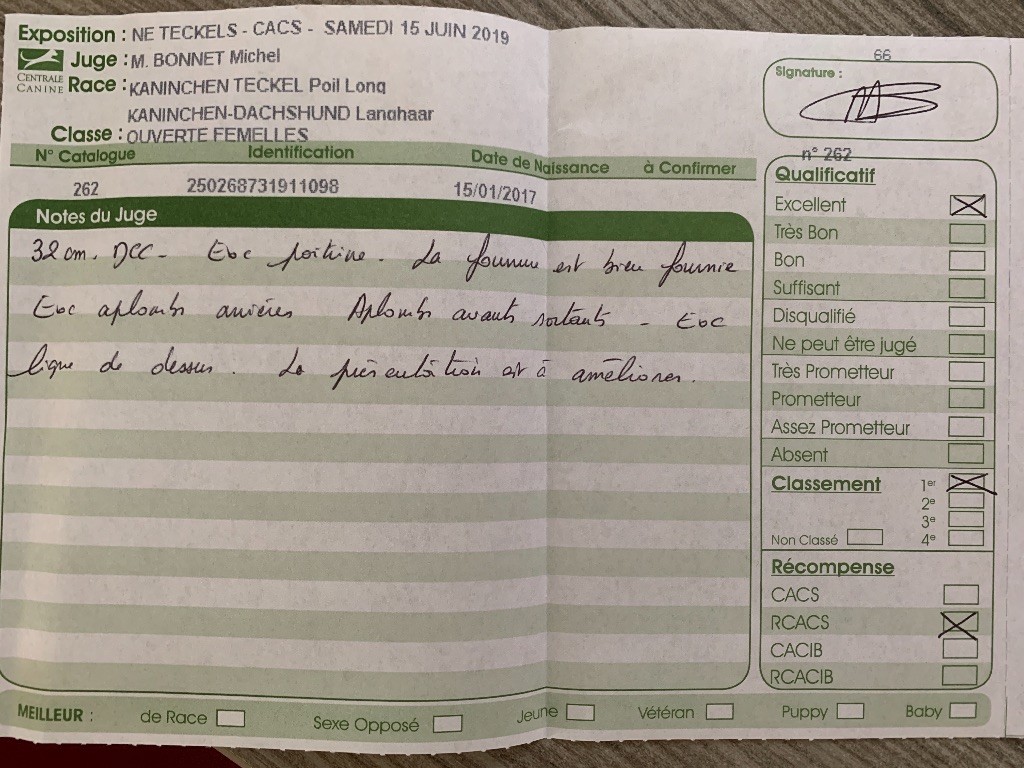 Exposition : NE TECKELS - CACS - SAMEDI 15 JUIN 2019
Juge : M. BONNET Michel
CENTRALE CANINE
Race : KANINCHEN TECKEL Poil Long
KANINCHEN-DACHSHUND Langhaar
Classe : OUVERTE FEMELLES
N° Catalogue Identification Date de Naissance à Confirmer
262 250268731911098 15/01/2017
Notes du Juge
32 cm. DCC - Exc poitrine. La fourrure est bien fournie
Exc aplombs arrières Aplombs avants sortants - Exc
ligne de dessus. La présentation est à améliorer.
66
Signature :
n° 262
Qualificatif
Excellent
Très Bon
Bon
Suffisant
Disqualifié
Ne peut être jugé
Très Prometteur
Prometteur
Assez Prometteur
Absent
Classement 1er
2e
3e
Non Classé 4e
Récompense
CACS
RCACS
CACIB
RCACIB
MEILLEUR : de Race Sexe Opposé Jeune Vétéran Puppy Baby